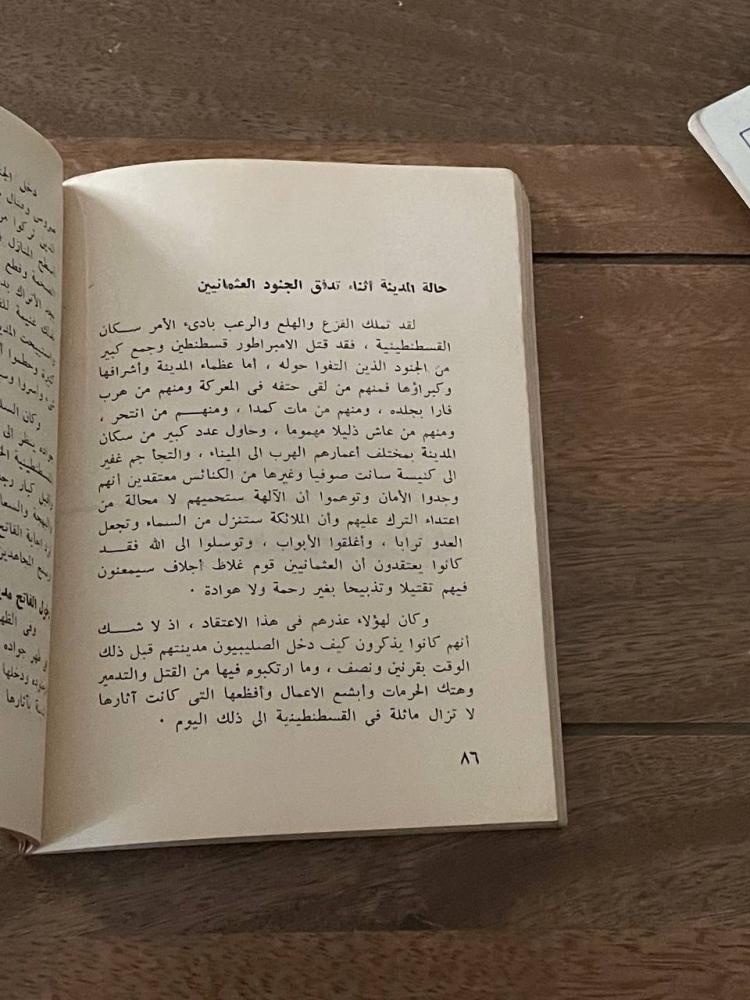 حالة المدينة أثناء تدفق الجنود العثمانيين
لقد تملك الفزع والهلع والرعب بادىء الأمر سكان
القسطنطينية ، فقد قتل الامبراطور قسطنطين وجمع كبير
من الجنود الذين التفوا حوله ، أما عظماء المدينة وأشرافها
وكبراؤها فمنهم من لقى حتفه فى المعركة ومنهم من هرب
فارا بجلده ، ومنهم من مات كمدا ، ومنهم من انتحر ،
ومنهم من عاش ذليلا مهموما ، وحاول عدد كبير من سكان
المدينة بمختلف أعمارهم الهرب الى الميناء ، والتجأ جم غفير
الى كنيسة سانت صوفيا وغيرها من الكنائس معتقدين أنهم
وجدوا الأمان وتوهموا أن الآلهة ستحميهم لا محالة من
اعتداء الترك عليهم وأن الملائكة ستنزل من السماء وتجعل
العدو ترابا ، وأغلقوا الأبواب ، وتوسلوا الى الله فقد
كانوا يعتقدون أن العثمانيين قوم غلاظ أجلاف سيمعنون
فيهم تقتيلا وتذبيحا بغير رحمة ولا هوادة .
وكان لهؤلاء عذرهم فى هذا الاعتقاد ، اذ لا شك
أنهم كانوا يذكرون كيف دخل الصليبيون مدينتهم قبل ذلك
الوقت بقرنين ونصف ، وما ارتكبوه فيها من القتل والتدمير
وهتك الحرمات وأبشع الاعمال وأفظعها التى كانت آثارها
لا تزال ماثلة فى القسطنطينية الى ذلك اليوم .
٨٦
دخل
المنازل
وقطع
الأتراك
وحطموا
وأسروا
وكان
جواده
كبار
الفاتح
المجاهدين
الفاتح
وفى
جواده
ودخلها
بآثارها